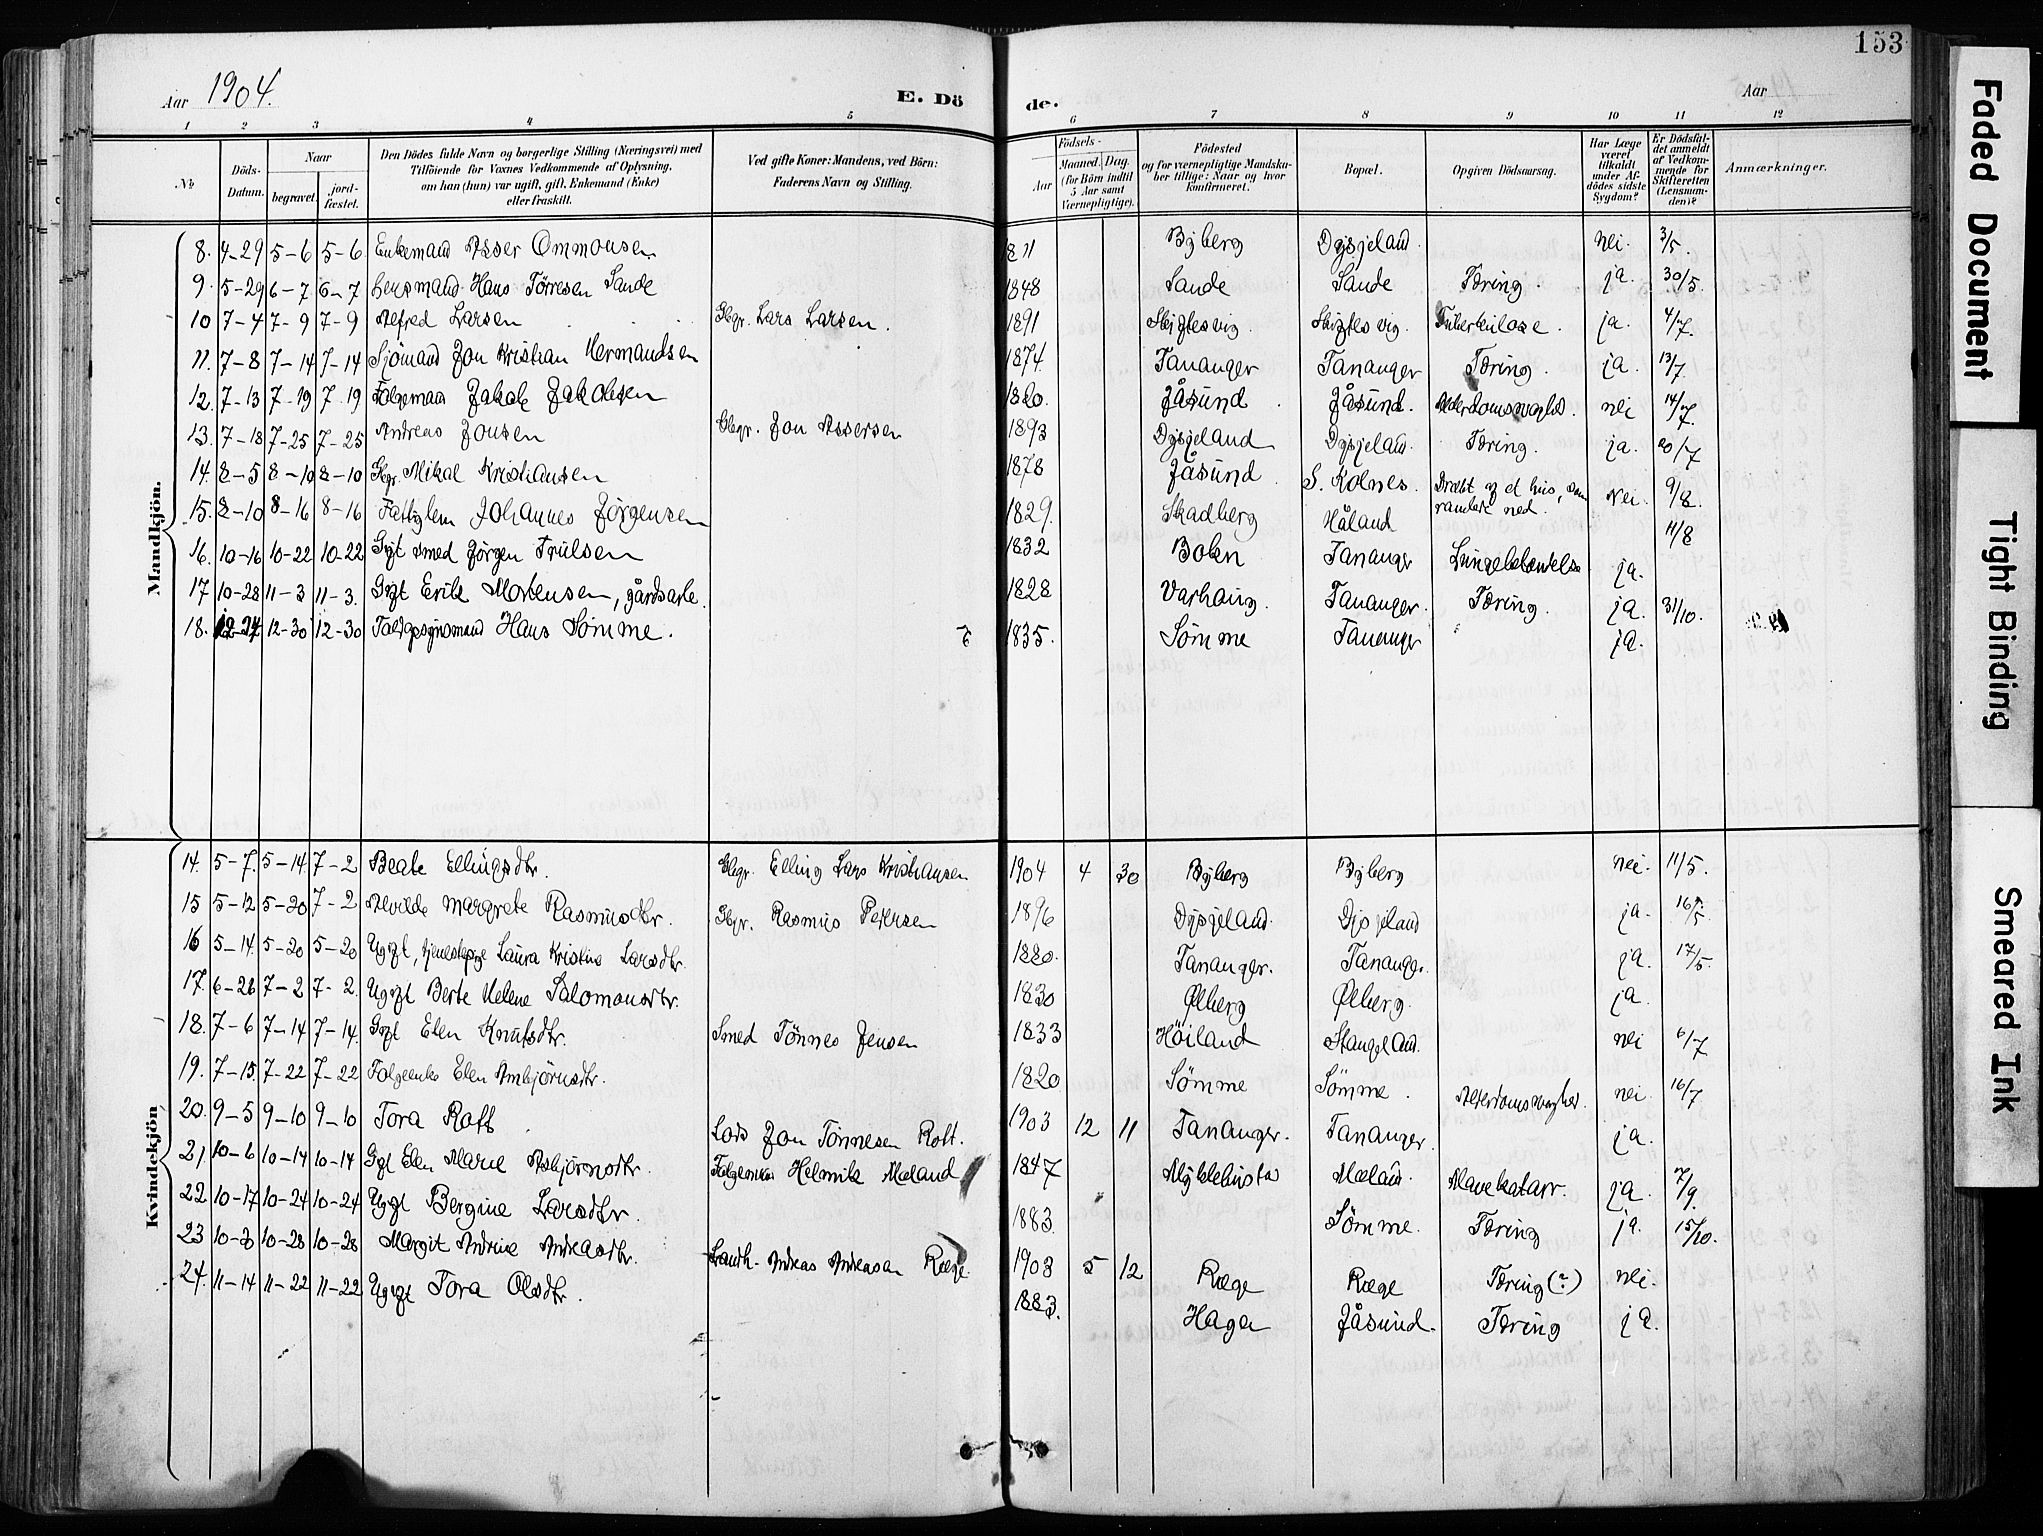 153
Aar 1904.
E. Dö de.
Aar
1 2 3 4 5 6 7 8 9 10 11 12
No
Döds-Datum.
Naar
begravet.
jord-fæstet.
Den Dödes fulde Navn og borgerlige Stilling (Næringsvei) med
Tilföiende for Voxnes Vedkommende af Oplysning,
om han (hun) var ugift, gift, Enkemand (Enke)
eller fraskilt.
Ved gifte Koner: Mandens, ved Börn:
Faderens Navn og Stilling.
Födsels-
Aar
Maaned. Dag.
(for Börn indtil
5 Aar samt
Værnepligtige).
Födested
og for værnepligtige Mandska-
ber tillige: Naar og hvor
konfirmeret.
Bopæl.
Opgiven Dödsaarsag.
Har Læge
været
tilkaldt
under Af-
dödes sidste
Sygdom?
Er Dödsfal-
det anmeldt
af Vedkom-
mende for
Skifteretten
(Lensman-
den)?
Anmærkninger.
Mandkjön.
8. 4-29 5-6 5-6 Enkemand Asser Ommonsen 1811 Byberg Dysjeland nei. 3/5.
9. 5-29 6-7 6-7 Lensmand Hans Tørresen Sande 1848 Sande Sande Tæring. ja. 30/5.
10 7-4 7-9 7-9 Alfred Larsen Gbgr. Lars Larsen. 1891 Skiftesvig. Skiftesvig. Tuberkulose. ja. 4/7.
11. 7-8 7-14 7-14 Sjömand Jon Kristian Hermandsen 1874. Tananger Tananger Tæring. ja. 13/7.
12. 7-13 7-19 7-19 Folgemand Jakob Jakobsen 1820. Jåsund. Jåsund. Alderdomssvaghed. nei 14/7.
13. 7-18 7-25 7-25 Andreas Jonsen Gbgr. Jon Assersen 1893 Dysjeland Dysjeland. Tæring. ja. 20/7
14. 8-5 8-10 8-10 Gbgr. Mikal Kristiansen 1878 Jåsund S. Kolnes. Dræbt af et hus, som ramlede ned. Nei. 9/8.
15. 8-10 8-16 8-16 Fattiglem Johannes Jørgensen 1829. Skadberg Håland 11/8
16. 10-16 10-22 10-22 Gift smed Jörgen Trulsen 1832 Bokn Tananger Lungebetændelse ja.
17 10-28 11-3 11-3. Gift Erik Mortensen, gårdsarb. 1828 Varhaug. Tananger. Tæring. ja. 31/10.
18. 12-24 12-30 12-30 Hans Sømme. 1835. Sømme Tananger ja.
Kvindekjön
14. 5-7. 5-14. 7-2 Beate Ellingsdtr. Gbgr. Elling Lars Kristiansen 1904 4 30 Byberg Byberg nei. 11/5.
15 5-12 5-20 7-2 Alvilde Margrete Rasmusdtr. Gbgr. Rasmus Petersen 1896 Dysjeland. Dysjeland ja. 16/5.
16 5-14. 5-20 5-20 Ugift, tjenestepige Laura Kristine Larsdtr. 1880. Tananger. Tananger. ja. 17/5.
17. 6-26 7-2 7-2. Ugift Berte Helene Salomonsdtr. 1830 Ølberg Ølberg. ja.
18. 7-6 7-14 7-14. Gift Elen Knutsdtr. Smed Tönnes Jensen 1833 Höiland Stangeland. nei 6/7
19. 7-15. 7-22 7-22 Folgeenke Elen Asbjörnsdtr. 1820 Sömme Sömme. Alderdomssvaghed. nei. 16/7
20. 9-5 9-10 9-10 Tora Rott Lods Jon Tönnesen Rott. 1903 12 11 Tananger. Tananger. ja.
21. 10-6 10-14 10-14 Gift Elen Marie Asbjørnsdtr. Folgemand Helmik Meland 1847 Myklebust Meland. Mavekatarr. ja. 7/9.
22 10-17 10-24 10-24 Ugift Bergine Larsdtr. 1883. Sömme. Tæring ja. 15/10.
23 10-20 10-28 10-28 Margit Andrine Andreasdtr. Landh. Andreas Andreasen Ræge. 1903 5 12 Ræge Ræge Tæring (?) nei.
24. 11-14 11-22 11-22 Ugift Tora Olsdtr. 1883. Haga Jåsund. Tæring ja.
Faded Document
Tight Binding
Smeared Ink